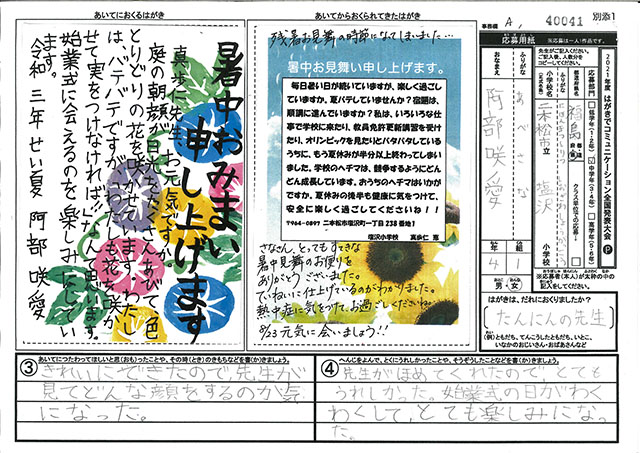 事務欄
A,
40041
別添1
あいてにおくるはがき
あいてからおくられてきたはがき
暑中おみまい
申し上げます
真歩仁先生、お元気ですか。
庭の朝顔が日光をたくさんあびて、色
とりどりの花を咲かせています。わたし
はバテバテですが、わたしも花を咲か
せて実をつけなければ…なんて思います。
始業式に会えるのを楽しみにしてい
ます。
令和三年せい夏 阿部 咲愛
残暑お見舞の時節になってしまいました…
暑中お見舞い申し上げます。
毎日暑い日が続いていますが、楽しく過ごし
ていますか。夏バテしていませんか?宿題は、
順調に進んでいますか?私は、いろいろな仕
事で学校に来たり、教員免許更新講習を受け
たり、オリンピックを見たりとバタバタしている
うちに、もう夏休みが半分以上終わってしまい
ました。学校のヘチマは、競争するようにどん
どん成長しています。おうちのヘチマはいかが
ですか。夏休みの後半も健康に気をつけて、
安全に楽しく過ごしてくださいね!!
〒964-0897 二本松市塩沢町一丁目238番地1
塩沢小学校
さなさん、とってもすてきな
暑中見舞のお便りを
ありがとうございました。
ていねいに仕上げているのがわかりました。
熱中症に気をつけて、お過ごしくださいね。
8/23元気に会いましょう!!
応募用紙
※応募は一人一作品です。
2021年度 はがきでコミュニケーション全国発表大会
応募部門
低学年(1・2年)
中学年(3・4年)
高学年(5・6年)
クラス単位での応募
都道府県名
福島
小学校名
二本松市立 塩沢 小学校
ふりがな
あべ さな
おなまえ
阿部 咲愛
年 4
組 1
男・女
※応募者(本人)が太枠の中の
記入をしてください。
はがきは、だれにおくりましたか?
(たんにんの先生)
(例)ともだち、てんこうしたともだち、いとこ、
いなかのおじいさん・おばあさんなど
③ あいてにつたわってほしいと思(おも)ったことや、その時(とき)のきもちなどを書(か)きましょう。
きれいにできたので先生が
見てどんな顔をするのか気
になった。
④ へんじをよんで、とくにうれしかったことや、そうぞうしたことなどを書(か)きましょう。
先生がほめてくれたので、とても
うれしかった。始業式の日がわく
わくして、とても楽しみになっ
た。